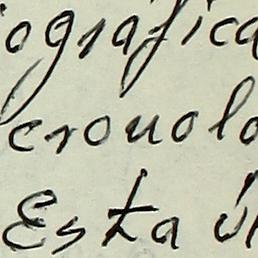 iografica
cronolo
Esta úl